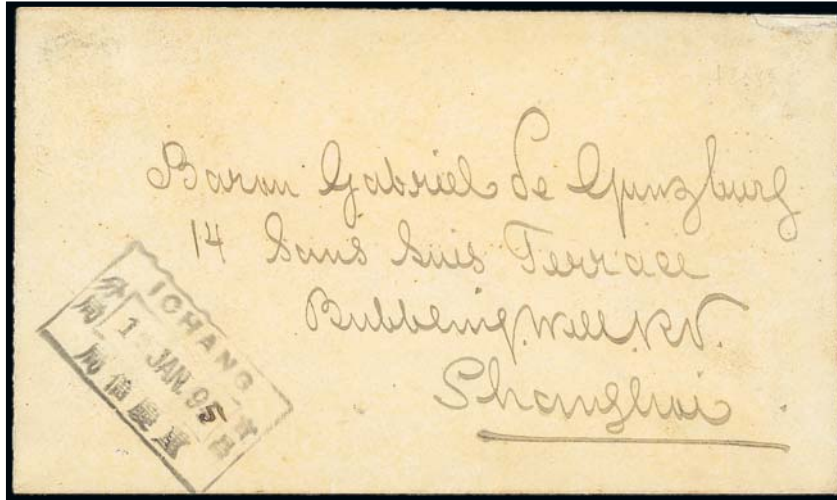 Baron Gabriel de Gunzburg
14 Sans Suis Terrace
Bubbling Well Rd.
Shanghai
ICHANG
1 JAN. 95
分局
宜昌
重慶信局